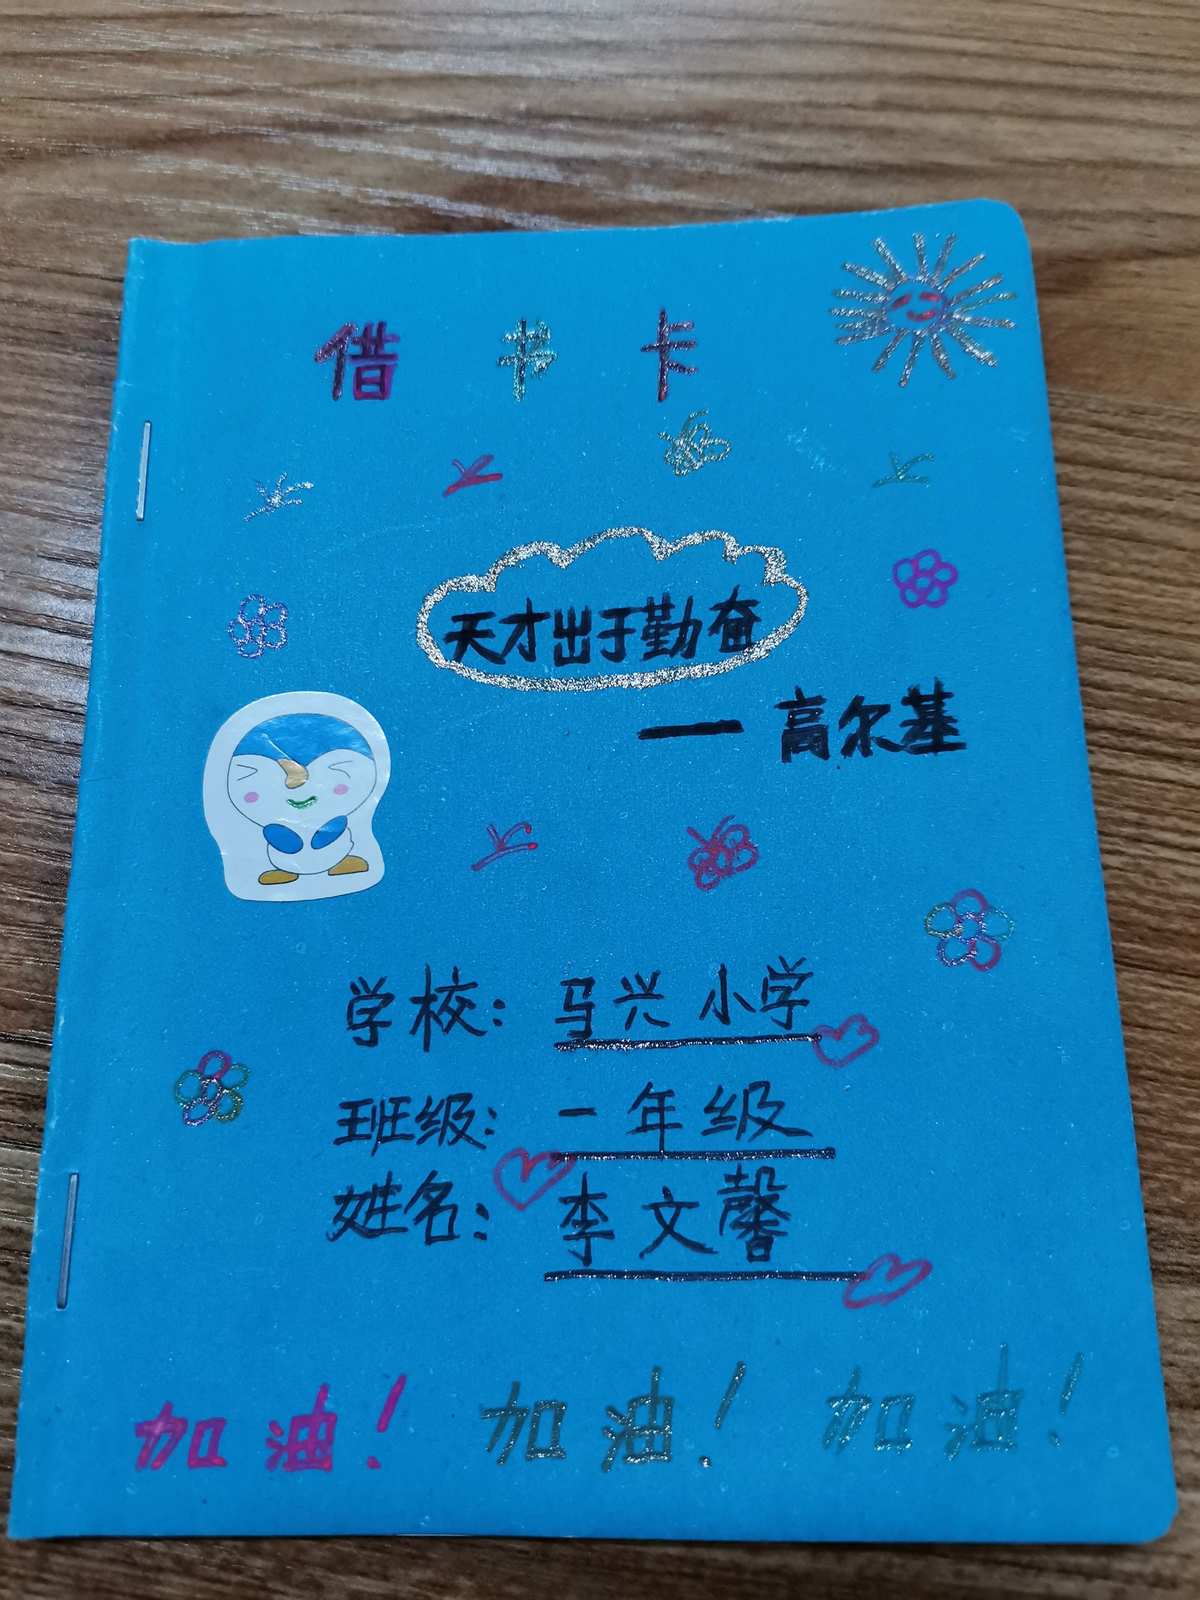 借书卡
天才出于勤奋
—高尔基
学校：马兴小学
班级：一年级
姓名：李文馨
加油！加油！加油！